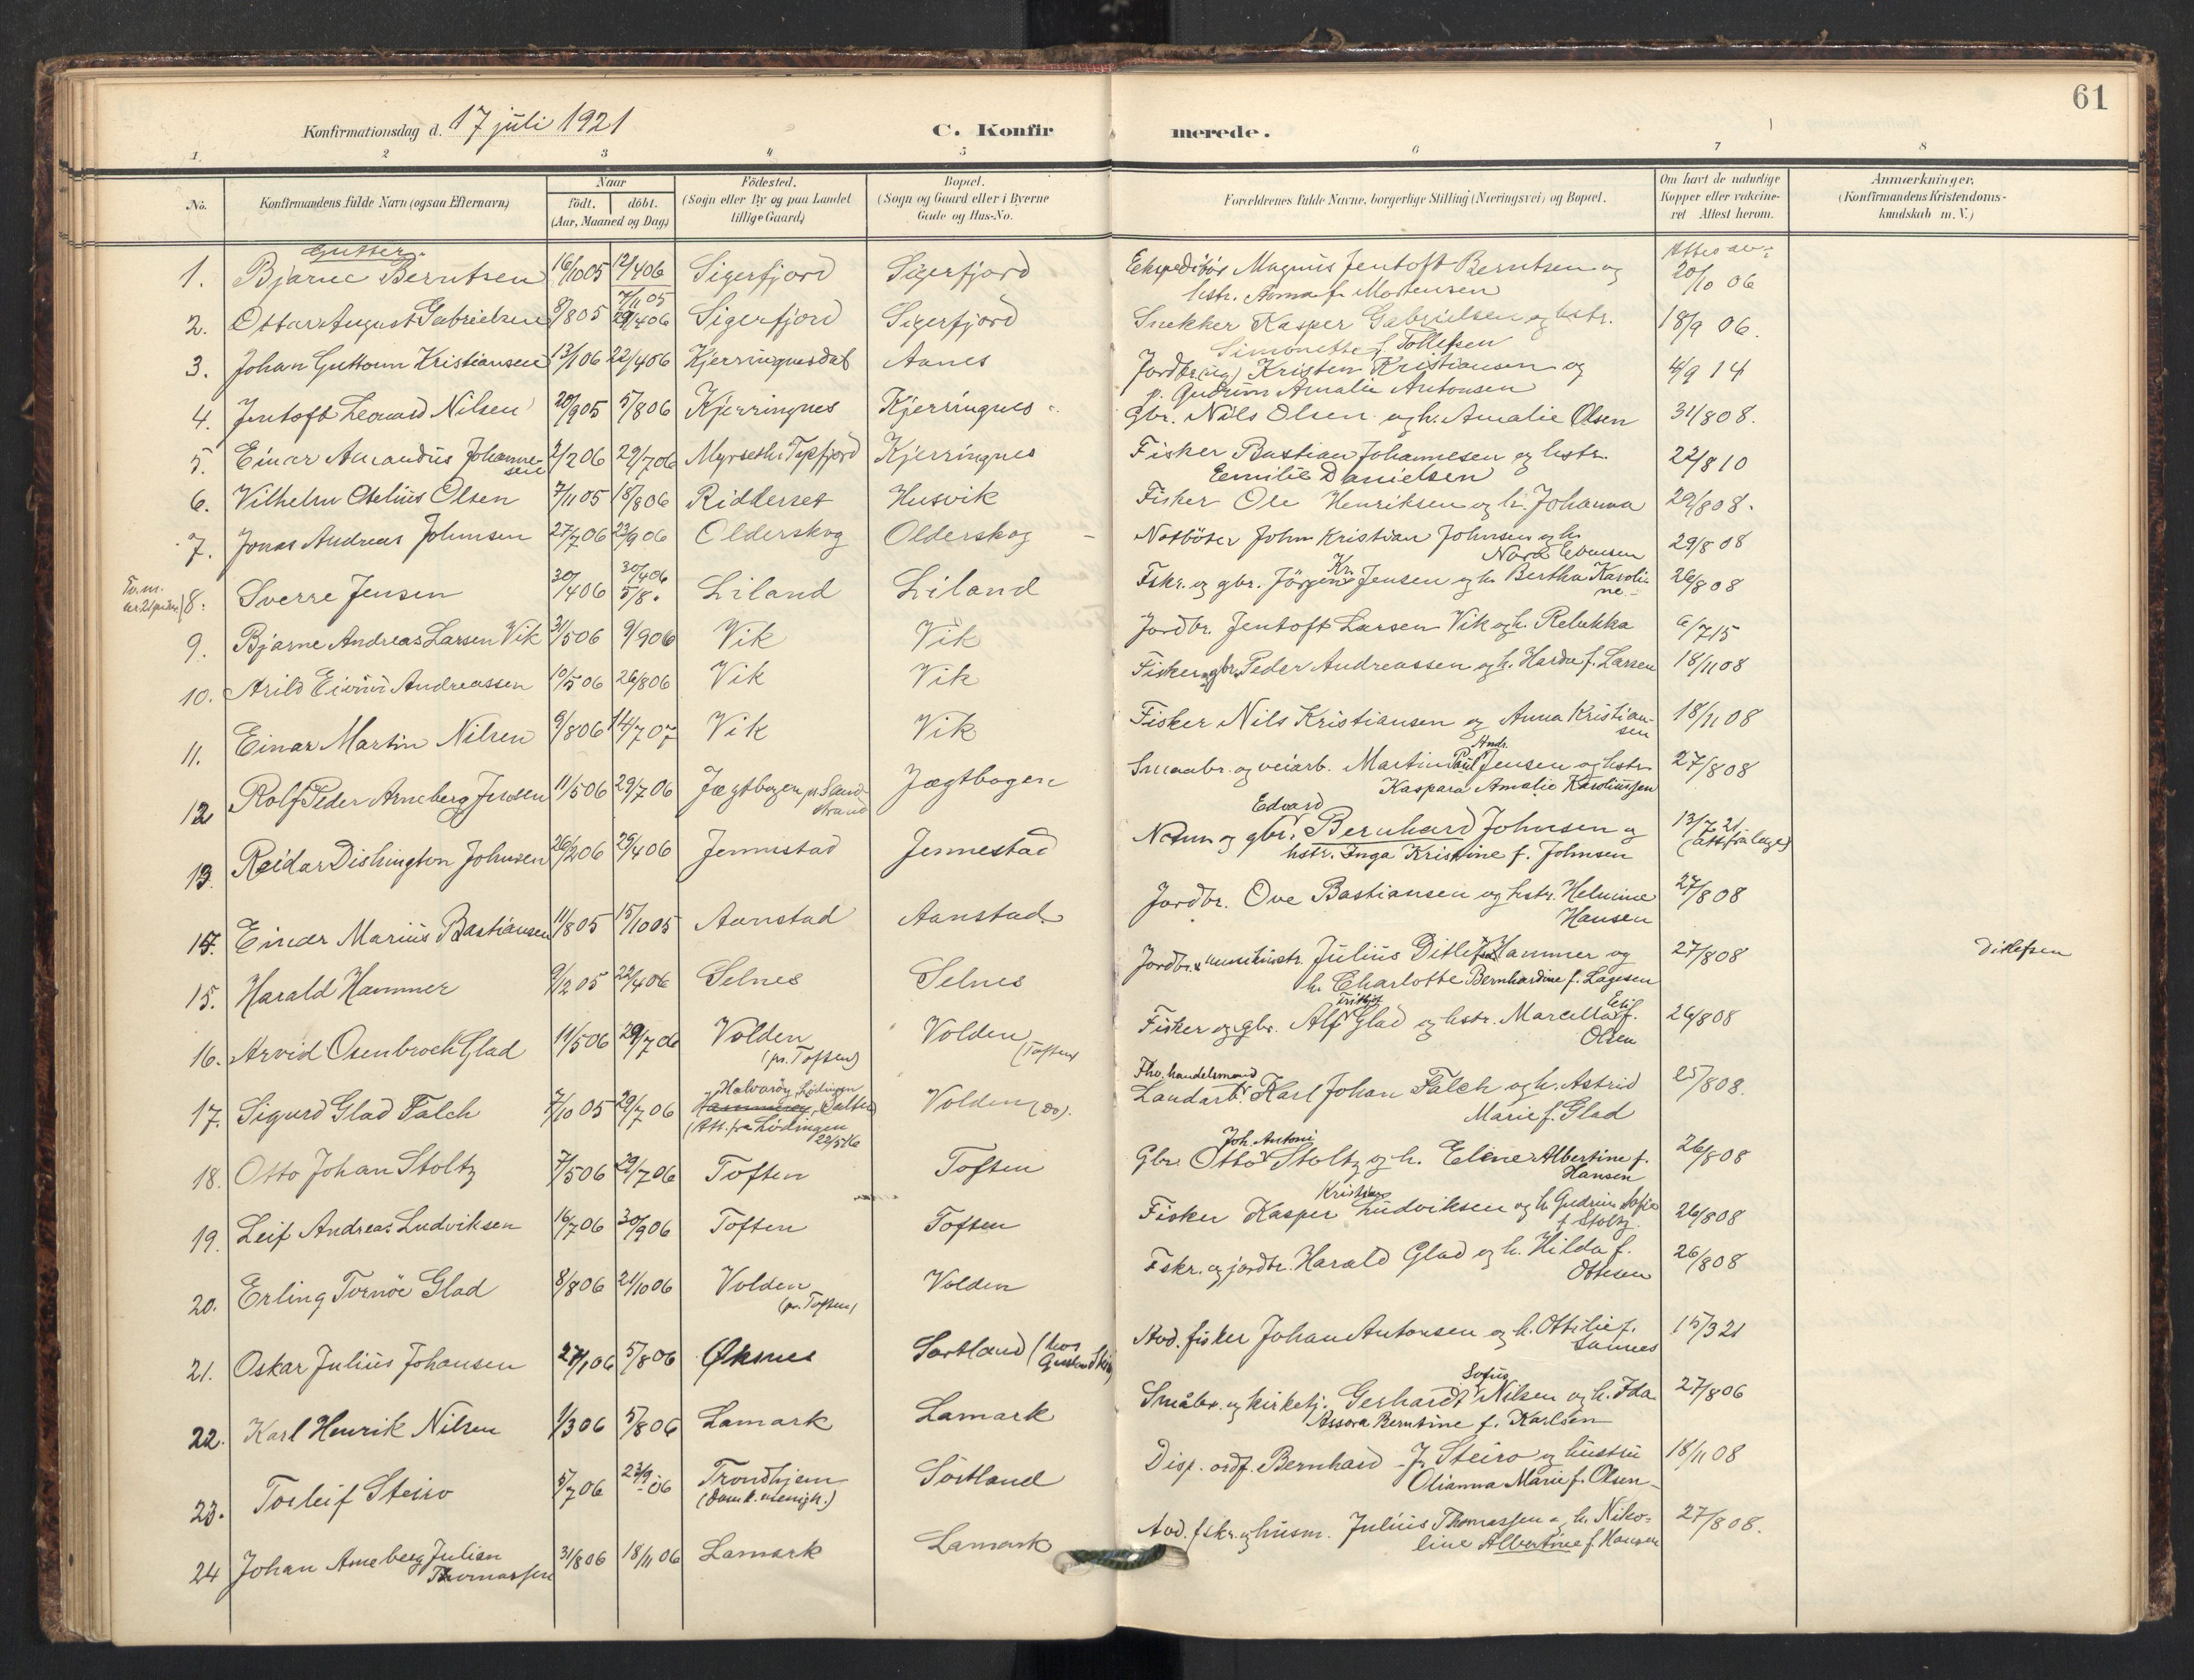 61
Konfirmationsdag d. 17 juli 1921
C. Konfirmerede.
1 2 3 4 5 6 7 8
No.
Konfirmandens fulde Navn (ogsaa Efternavn)
Naar
födt. döbt.
(Aar, Maaned og Dag)
Födested.
(Sogn eller By og paa Landet
tillige Gaard)
Bopæl.
(Sogn og Gaard eller i Byerne
Gade og Hus-No.
Forældrenes fulde Navne, borgerlige Stilling (Næringsvei) og Bopæl.
Om havt de naturlige
Kopper eller vakcine-
ret Attest herom.
Anmærkninger.
(Konfirmandens Kristendoms-
kundskab m. V.)
Gutter.
1. Bjarne Berntsen 16/10 05 12/4 06 Sigerfjord Sigerfjord Ekspeditör Magnus Jentoft Berntsen og 20/10 06
hstr. Anna f. Mortensen
7/11 05
2. Ottar August Gabrielsen 8/8 05 29/4 06 Sigerfjord Sigerfjord Snekker Kasper Gabrielsen og hstr. 18/9 06.
Simonette f. Tollefsen
3. Johan Guttorm Kristiansen 13/1 06 22/4 06 Kjerringnesdal Aanes Jordbr. (ug) Kristen Kristiansen og 4/9 14
p. Gudrun Amalie Antonsen
4. Jentoft Leonard Nilsen 20/9 05 5/8 06 Kjerringnes Kjerringnes Gbr. Nils Olsen og h. Amalie Olsen 31/8 08.
5. Einar Amandus Johanne-
sen 2/2 06 29/7 06 Myrseth i Topfjord Kjerringnes Fisker Bastian Johannesen og hstr. 22/8 10
Emilie Danielsen
6. Vilhelm Otelius Olsen 7/11 05 18/8 06 Ridderset Husvik Fisker Ole Henriksen og h. Johanna 29/8 08.
7. Jonas Andreas Johnsen 27/7 06 23/9 06 Olderskog Olderskog Notböter John Kristian Johnsen og h. 29/8 08
Nora Evensen
30/4 06
8. Sverre Jensen 30/4 06 5/8. Liland Liland Fskr. og gbr. Jörgen Kr. Jensen og h. Bertha Karoli-
ne 26/8 08
9. Bjarne Andreas Larsen Vik 31/5 06 9/9 06 Vik Vik Jordbr. Jentoft Larsen Vik og h. Rebekka 6/7 15
10. Arild Eivind Andreassen 10/5 06 26/8 06 Vik Vik Fisker og gbr. Peder Andreassen og h. Harda f. Larsen 18/11 08
11. Einar Martin Nilsen 9/8 06 14/7 07 Vik Vik Fisker Nils Kristiansen og Anna Kristian-
sen 18/11 08
12 Rolf Peder Arneberg Jensen 11/5 06 29/7 06 Jægtbogen pr. Sand-
strand Jægtbogen Smaabr. og veiarb. Martin Paul Andr. Jensen og hstr. 27/8 08
Kaspara Amalie Karoliussen
13. Reidar Dishington Johnsen 26/2 06 29/4 06 Jennestad Jennestad og gbr. Edvard Bernhard Johnsen og 13/7 21
hstr. Inga Kristine f. Johnsen (att. fra læge)
14. Einar Marius Bastiansen 11/8 05 15/10 05 Aanstad Aanstad Jordbr. Ove Bastiansen og hstr. Helmine 27/8 08
Hansen
15. Harald Hammer 9/12 05 22/4 06 Selnes Selnes Jordbr. Julius Ditlefsen Hammer og 27/8 08 Ditlefsen
h. Charlotte Bernhardine f. Lagesen
16. Arvid Osenbroch Glad 11/5 06 29/7 06 Volden Volden Fisker og gbr. Alf Fritjof Glad og hstr. Marcella f. 26/8 08
(pr. Toften) (Toften) Olsen
17. Sigurd Glad Falch 7/10 05 29/7 06 Halvaröy, Lödingen Volden (do). Landarb. Karl Johan Falch og h. Astrid 25/8 08.
Fhv. handelsmand
(Att. fra Lödingen Marie f. Glad
22/5 16
18. Otto Johan Stoltz 7/5 06 29/7 06 Toften Toften Gbr. Otto Joh. Antoni Stoltz og h. Eline Albertine f. 26/8 08
Hansen
19. Leif Andreas Ludviksen 16/7 06 30/9 06 Toften Toften Fisker Kasper Kristian Ludviksen og h. Gudrun Sofie 26/8 08
f. Stoltz
20. Erling Tornöe Glad 8/8 06 21/10 06 Volden Volden Fskr. og jordbr. Harald Glad og h. Hilda f. 26/8 08
(pr. Toften) Ottesen
21. Oskar Julius Johansen 27/1 06 5/8 06 Øksnes Sortland (hos Avd. fisker Johan Antonsen og h. Ottilie f. 15/3 21
22. Karl Henrik Nilsen 1/3 06 5/8 06 Lamark Lamark Småbr. og kirketj. Gerhardt Sofus Nilsen og h. Ida 27/8 06
Assora Berntine f. Karlsen
23. Torleif Steiro 5/7 06 23/9 06 Trondhjem Sortland Disp. ordf. Bernhard J. Steiro og hustru 18/11 08
(Domk. menigh.) Olianna Marie f. Olsen
24 Johan Arneberg Julian
Thomassen 31/8 06 18/11 06 Lamark Lamark Avd. fskr. og husm. Julius Thomassen og h. Niko-
line Albertine f. Hansen 27/8 08.